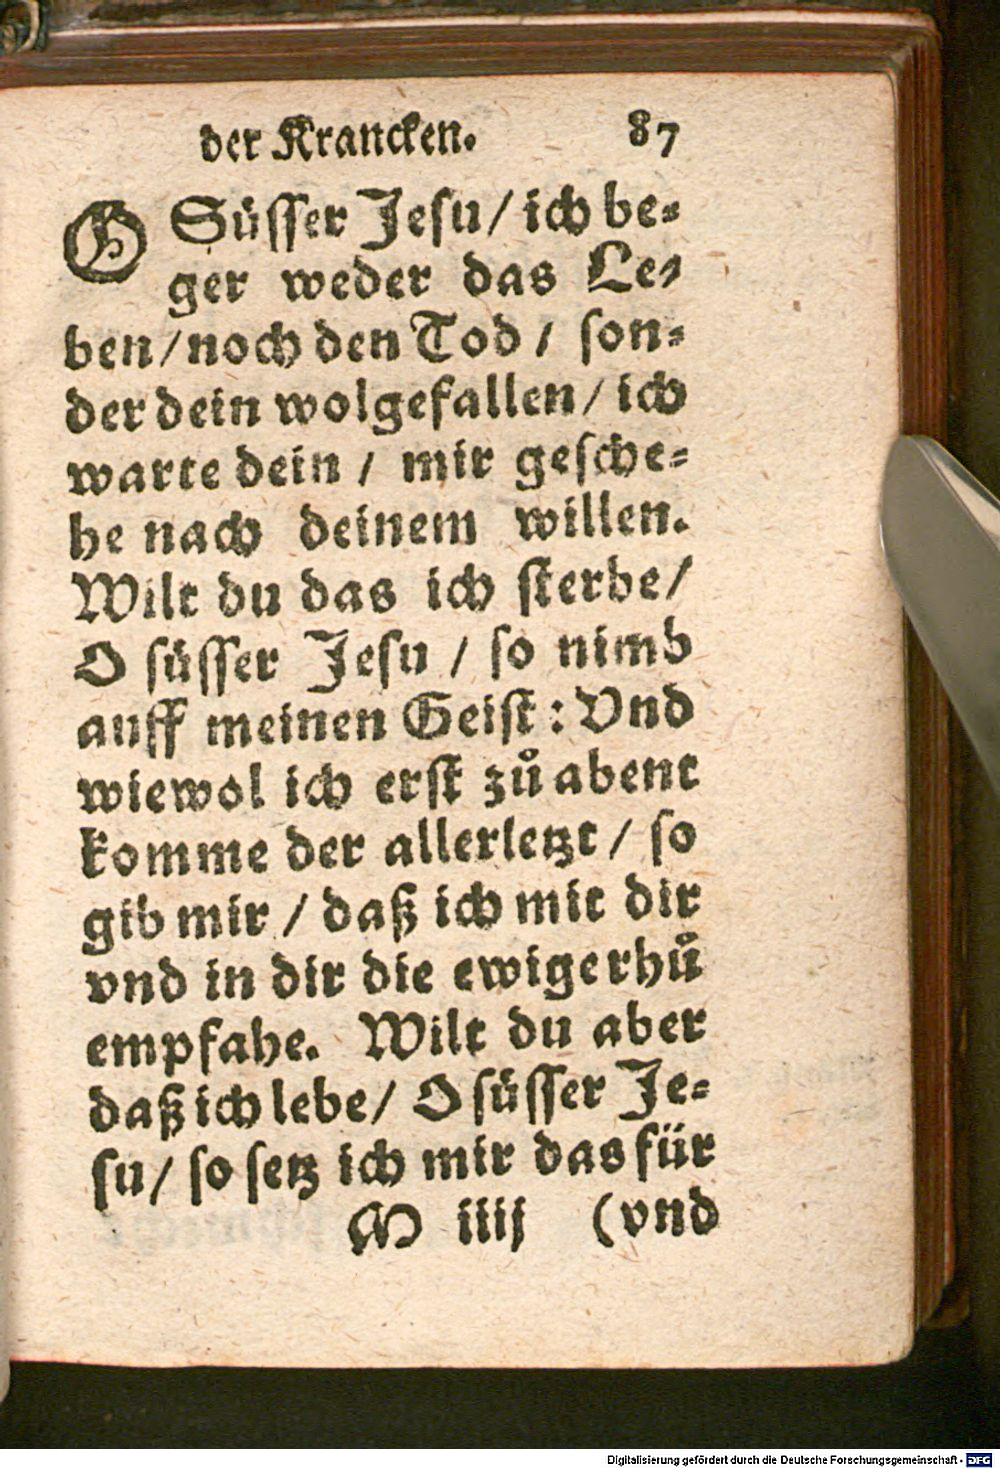 der Krancken. 87
O Süsser Jesu/ ich be-
ger weder das Le-
ben/ noch den Tod/ son-
der dein wolgefallen/ ich
warte dein/ mir gesche-
he nach deinem willen.
Wilt du das ich sterbe/
O süsser Jesu/ so nimb
auff meinen Geist: Vnd
wiewol ich erst zů abent
komme der allerletzt/ so
gib mir/ daß ich mit dir
vnd in dir die ewige rhů
empfahe. Wilt du aber
daß ich lebe/ O süsser Je-
su/ so setz ich mir das für
M iiij (vnd
Digitalisierung gefördert durch die Deutsche Forschungsgemeinschaft - DFG